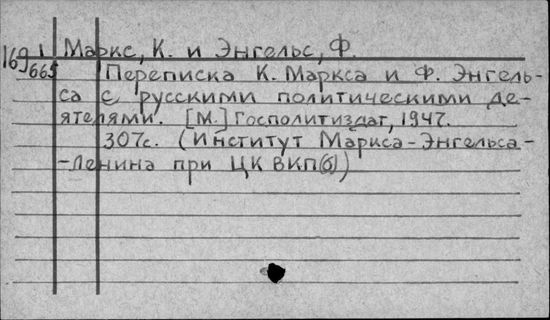 169 1 Маркс, К. и Энгельс, Ф.
665 Переписка К. Маркса и Ф. Энгель-
са с русскими политическими де-
ятелями. [М.] Госполитиздат, 1947.
307с. (Институт Маркса-Энгельса-
-Ленина при ЦК ВКП(б))